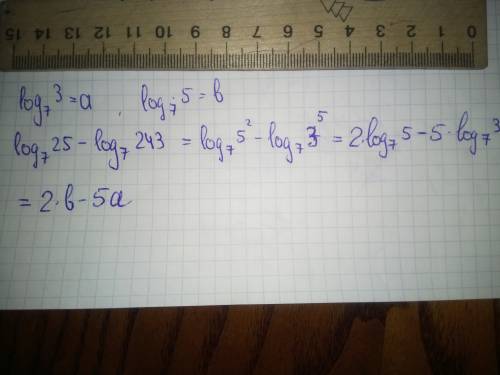 15 14 13 12 11 10 9 8 7 6 5 4 3 2 1 0
log₇3=a, log₇5=b
log₇25-log₇243=log₇5²-log₇3⁵=2·log₇5-5·log₇3
=2·b-5a